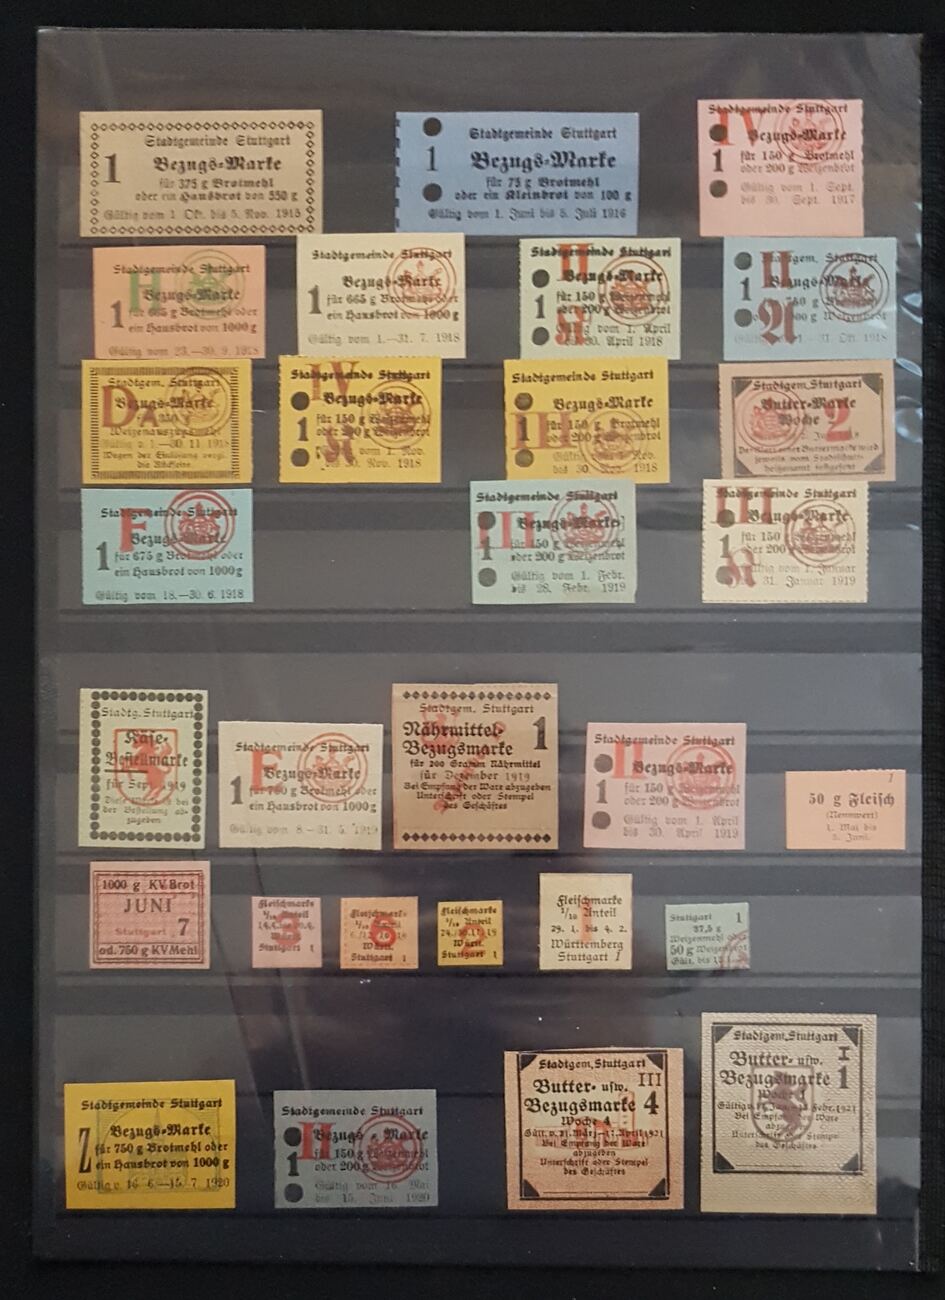 Stadtgemeinde Stuttgart
1 Bezugs-Marke
für 375 g Brotmehl
oder ein Hausbrot von 550 g
Gültig vom 1. Okt. bis 5. Nov. 1915
Stadtgemeinde Stuttgart
1 Bezugs-Marke
für 75 g Brotmehl
oder ein Kleinbrot von 100 g
Gültig vom 1. Juni bis 5. Juli 1916
Stadtgemeinde Stuttgart
IV
1 Bezugs-Marke
für 150 g Brotmehl
oder 200 g Weizenbrot
Gültig vom 1. Sept.
bis 30. Sept. 1917
Stadtgemeinde Stuttgart
H
1 Bezugs-Marke
für 665 g Brotmehl oder
ein Hausbrot von 1000 g
Gültig vom 23.-30. 9. 1918
Stadtgemeinde Stuttgart
1 Bezugs-Marke
für 665 g Brotmehl oder
ein Hausbrot von 1000 g
Gültig vom 1.—31. 7. 1918
Stadtgemeinde Stuttgart
II
1 Bezugs-Marke
für 150 g
oder 200 g
Gültig vom 1. April
bis 30. April 1918
Stadtgem. Stuttgart
II
1 Bezugs-Marke
Weizenbrot
31. Okt. 1918
Stadtgem. Stuttgart
D
Bezugs-Marke
Weizenauszugmehl
Gültig v. 1.—30. 11 1918
Wegen der Einlösung vergl.
die Rückseite.
Stadtgemeinde Stuttgart
IV
1 Bezugs-Marke
für 150 g
oder 200 g Weizenbrot
vom 1. Nov.
bis 30. Nov. 1918
Stadtgemeinde Stuttgart
II
1 Bezugs-Marke
für 150 g Brotmehl
oder 200 g Weizenbrot
Gültig vom 1. Nov.
bis 30. Nov. 1918
Stadtgem. Stuttgart
Butter-Marke
Woche 2
Der Wert einer Buttermarke wird
jeweils vom
bekannt
Stadtgemeinde Stuttgart
F
1 Bezugs-Marke
für 675 g Brotmehl oder
ein Hausbrot von 1000 g
Gültig vom 18.—30. 6. 1918
Stadtgemeinde Stuttgart
III
1 Bezugs-Marke
für 150 g Brotmehl
oder 200 g Weizenbrot
Gültig vom 1. Febr.
bis 28. Febr. 1919
Stadtgemeinde Stuttgart
III
1 Bezugs-Marke
für 150 g Brotmehl
oder 200 g Weizenbrot
Gültig vom 1. Januar
31. Januar 1919
Stadtg. Stuttgart
Käse-
Bestellmarke
für Sept. 1919
Diese bei
der Bestellung ab-
zugeben
Stadtgemeinde Stuttgart
F
1 Bezugs-Marke
für 750 g Brotmehl oder
ein Hausbrot von 1000 g
Gültig vom 8.—31. 5. 1919
Stadtgem. Stuttgart
Nährmittel- 1
Bezugsmarke
für 200 Gramm Nährmittel
für Dezember 1919
Bei Empfang der Ware abzugeben
Unterschrift oder Stempel
des Geschäftes
Stadtgemeinde Stuttgart
1 Bezugs-Marke
für 150 g Brotmehl
oder 200 g Weizenbrot
Gültig vom 1. April
bis 30. April 1919
1
50 g Fleisch
(Nennwert)
1. Mai bis
5. Juni.
1000 g KV Brot
JUNI
Stuttgart 7
od. 750 g KV Mehl
Fleischmarke
1/10 Anteil
Stuttgart 1
Fleischmarke
1/10 Anteil
Württ.
Stuttgart 1
Fleischmarke
1/10 Anteil
Württ.
Stuttgart 1
Fleischmarke
1/10 Anteil
29. 1. bis 4. 2.
Württemberg
Stuttgart 1
Stuttgart 1
37,5 g
Weizenmehl oder
50 g Weizenbrot
Gült. bis
Stadtgemeinde Stuttgart
Z Bezugs-Marke
für 750 g Brotmehl oder
ein Hausbrot von 1000 g
Gültig v. 16. 6.—15. 7. 1920
Stadtgemeinde Stuttgart
II
1 Bezugs-Marke
für 150 g Brotmehl
oder 200 g Weizenbrot
Gültig vom 16. Mai
bis 15. Juni 1920
Stadtgem. Stuttgart
Butter- usw. III
Bezugsmarke 4
Woche 4
Gült. v. 21. März—17. April 1921
Bei Empfang der Ware
abzugeben
Unterschrift oder Stempel
des Geschäftes
Stadtgem. Stuttgart
Butter- usw. I
Bezugsmarke 1
Woche 1
Febr. 1921
Bei Empfang der Ware
abzugeben
Unterschrift oder Stempel
des Geschäftes